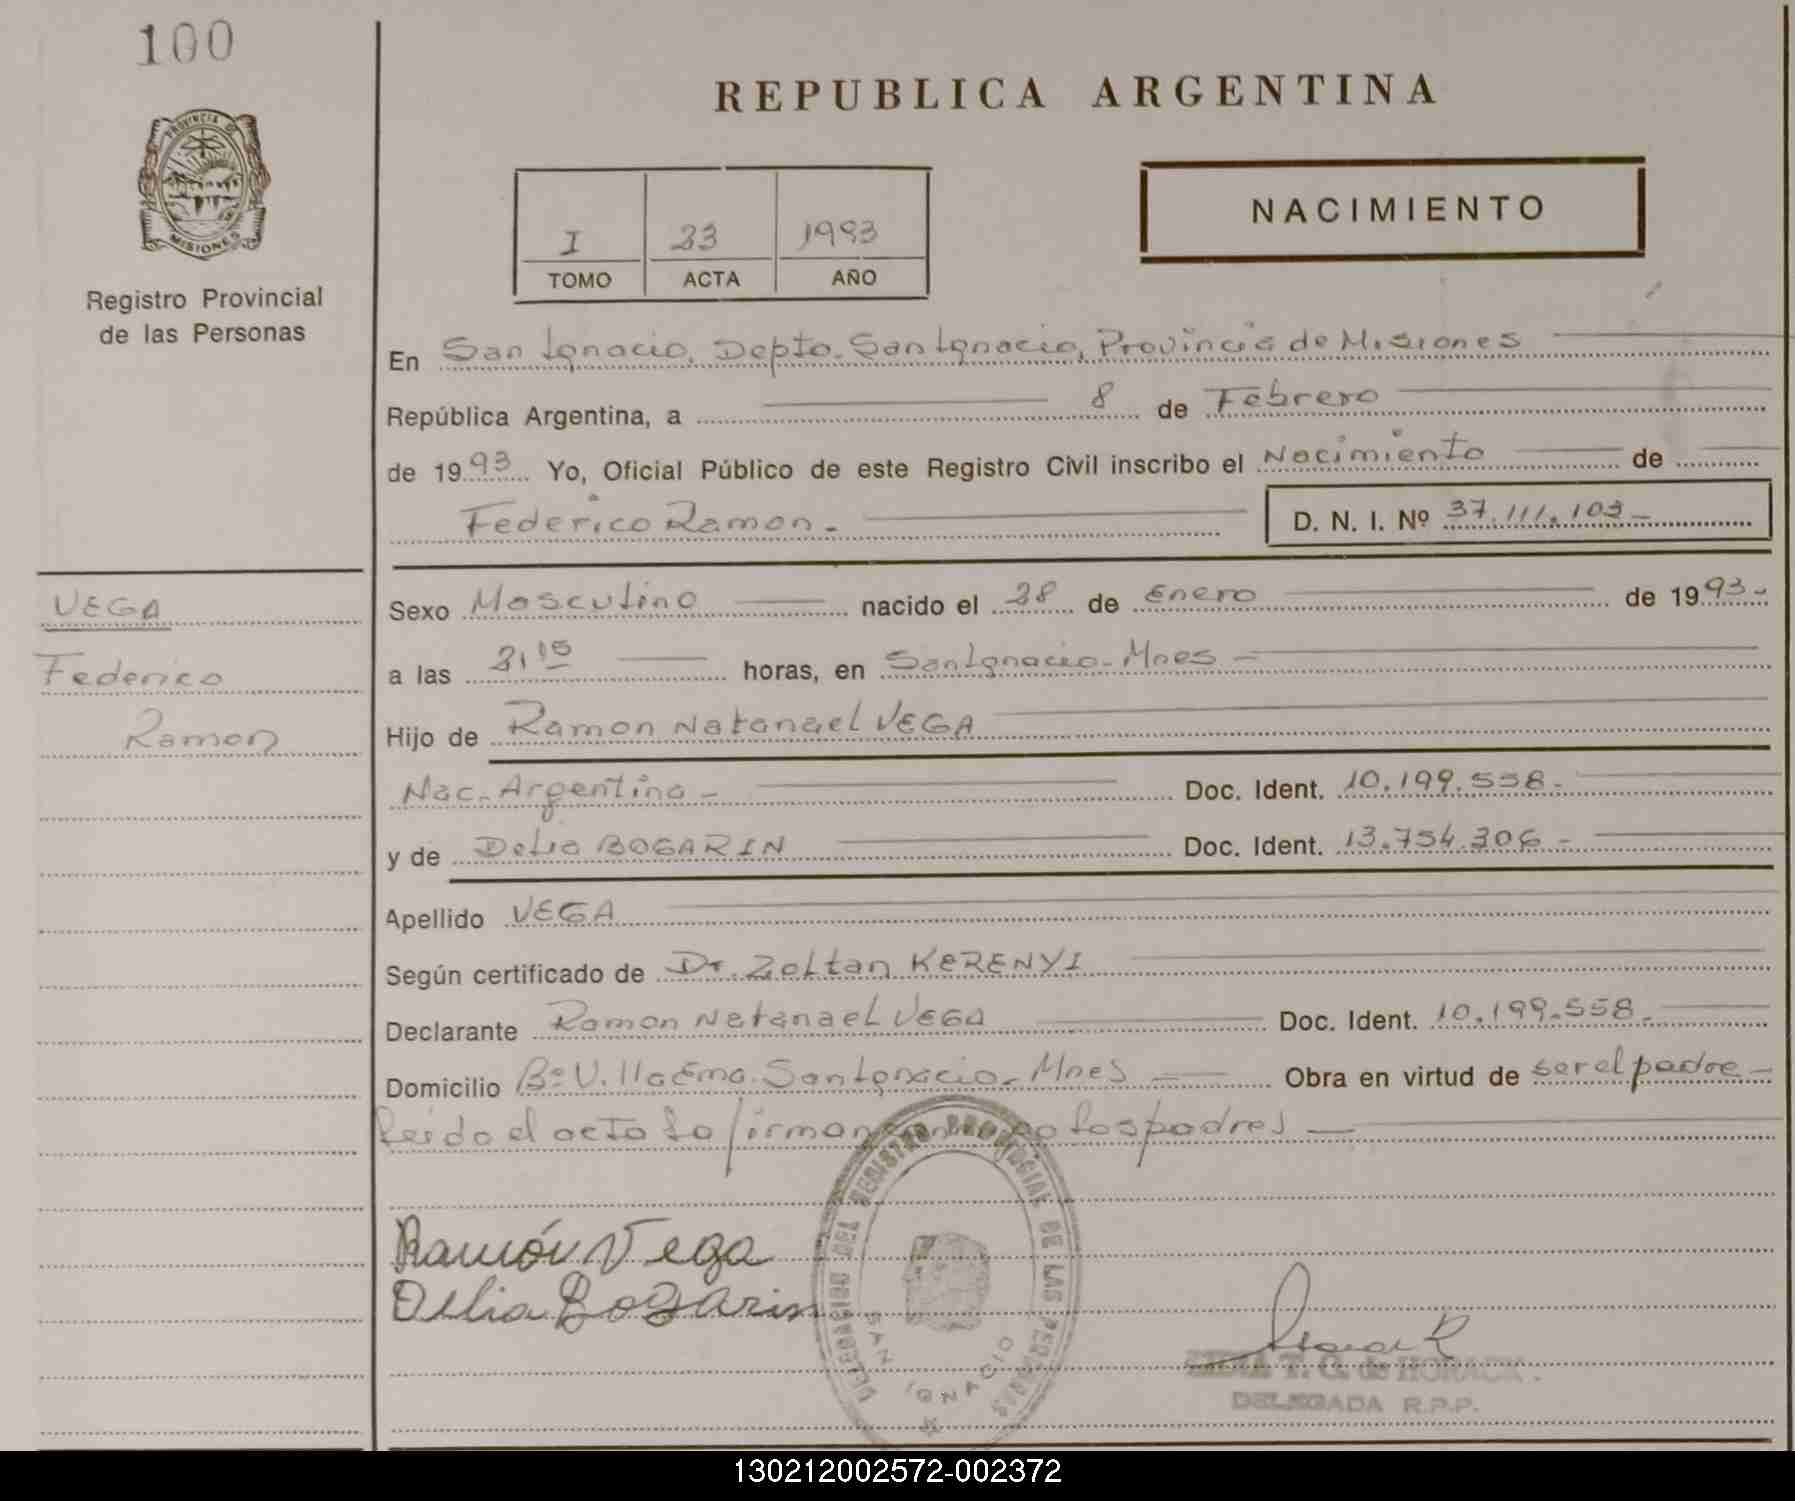 100
REPUBLICA ARGENTINA
PROVINCIA DE
MISIONES
Registro Provincial
de las Personas
I 33 1993
TOMO ACTA AÑO
NACIMIENTO
En San Ignacio, Depto. San Ignacio, Provincia de Misiones
República Argentina, a 8 de Febrero
de 1993 Yo, Oficial Público de este Registro Civil inscribo el Nacimiento de
Federico Ramon.- D. N. I. Nº 37.111.103-
VEGA
Federico
Ramon
Sexo Masculino nacido el 28 de Enero de 1993-
a las 21,15 horas, en San Ignacio-Mnes-
Hijo de Ramon Natanael VEGA
Nac. Argentina- Doc. Ident. 10.199.558-
y de Delia BOGARIN Doc. Ident. 13.754.306-
Apellido VEGA
Según certificado de Dr. Zoltan KERENYI
Declarante Ramon Natanael VEGA Doc. Ident. 10.199.558.
Domicilio Bº Villa Ema. San Ignacio-Mnes Obra en virtud de ser el padre-
Leido el acta la firman los padres-
REGISTRO PROVINCIAL DE LAS PERSONAS
SAN IGNACIO
Ramón Vega
Delia Bogarin
T. G. de HORACK.
DELEGADA R.P.P.
130212002572-002372